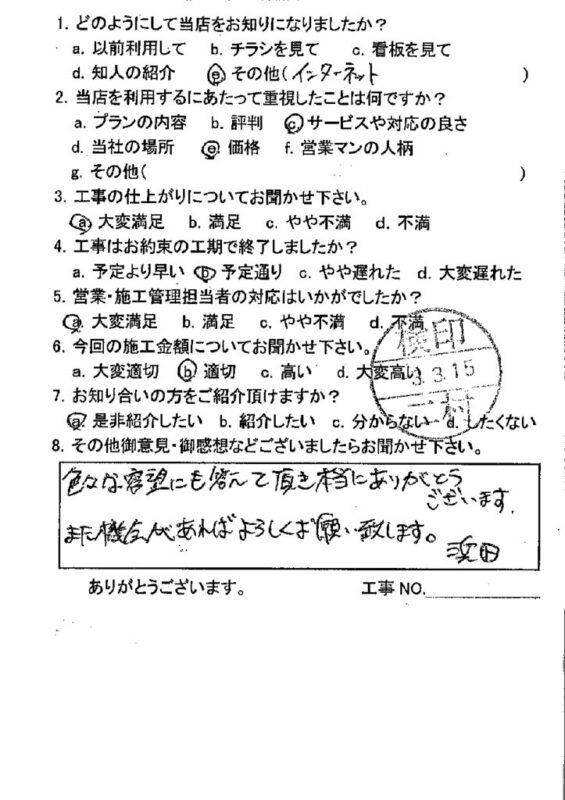 1. どのようにして当店をお知りになりましたか？
a. 以前利用して b. チラシを見て c. 看板を見て
d. 知人の紹介 e その他(インターネット )
2. 当店を利用するにあたって重視したことは何ですか？
a. プランの内容 b. 評判 c サービスや対応の良さ
d. 当社の場所 e 価格 f. 営業マンの人柄
g. その他( )
3. 工事の仕上がりについてお聞かせ下さい。
a 大変満足 b. 満足 c. やや不満 d. 不満
4. 工事はお約束の工期で終了しましたか？
a. 予定より早い b 予定通り c. やや遅れた d. 大変遅れた
5. 営業・施工管理担当者の対応はいかがでしたか？
a. 大変満足 b. 満足 c. やや不満 d. 不満
6. 今回の施工金額についてお聞かせ下さい。
a. 大変適切 b 適切 c. 高い d. 大変高い
検印
3.3.15
村
7. お知り合いの方をご紹介頂けますか？
a 是非紹介したい b. 紹介したい c. 分からない d. したくない
8. その他御意見・御感想などございましたらお聞かせ下さい。
色々な容望にも答えて頂き本当にありがとう
ございます.
また機会があればよろしくお願い致します。
浜田
ありがとうございます。 工事 NO.